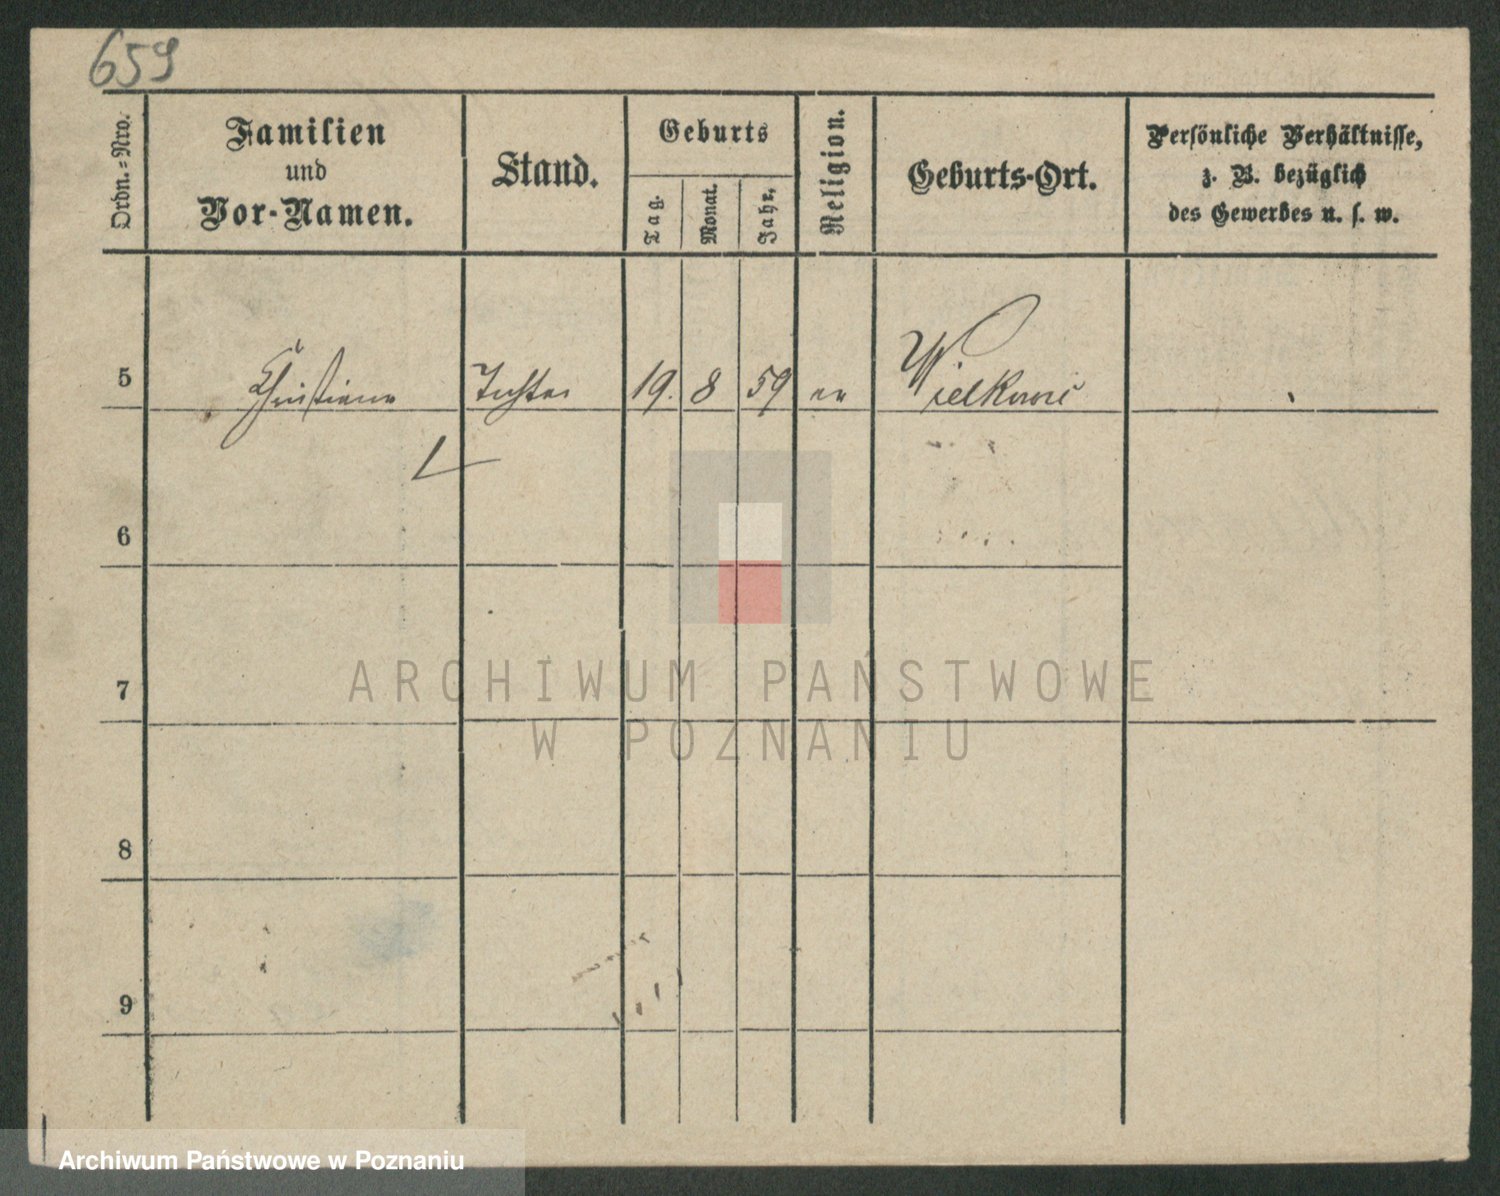 659
Ordn.=Nro.
Familien
und
Vor-Namen.
Stand.
Geburts
Tag.
Monat.
Jahr.
Religion.
Geburts-Ort.
Persönliche Verhältnisse,
z. B. bezüglich
des Gewerbes u. s. w.
5 Christiane Tochter 19. 8 59 ev
6
7
8
9
ARCHIWUM PAŃSTWOWE
W POZNANIU
Archiwum Państwowe w Poznaniu